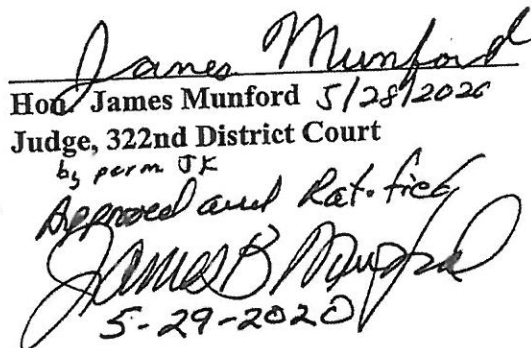 James Munford
Hon. James Munford 5/28/2020
Judge, 322nd District Court
by perm. JK
Approved and Ratified
James B Munford
5-29-2020